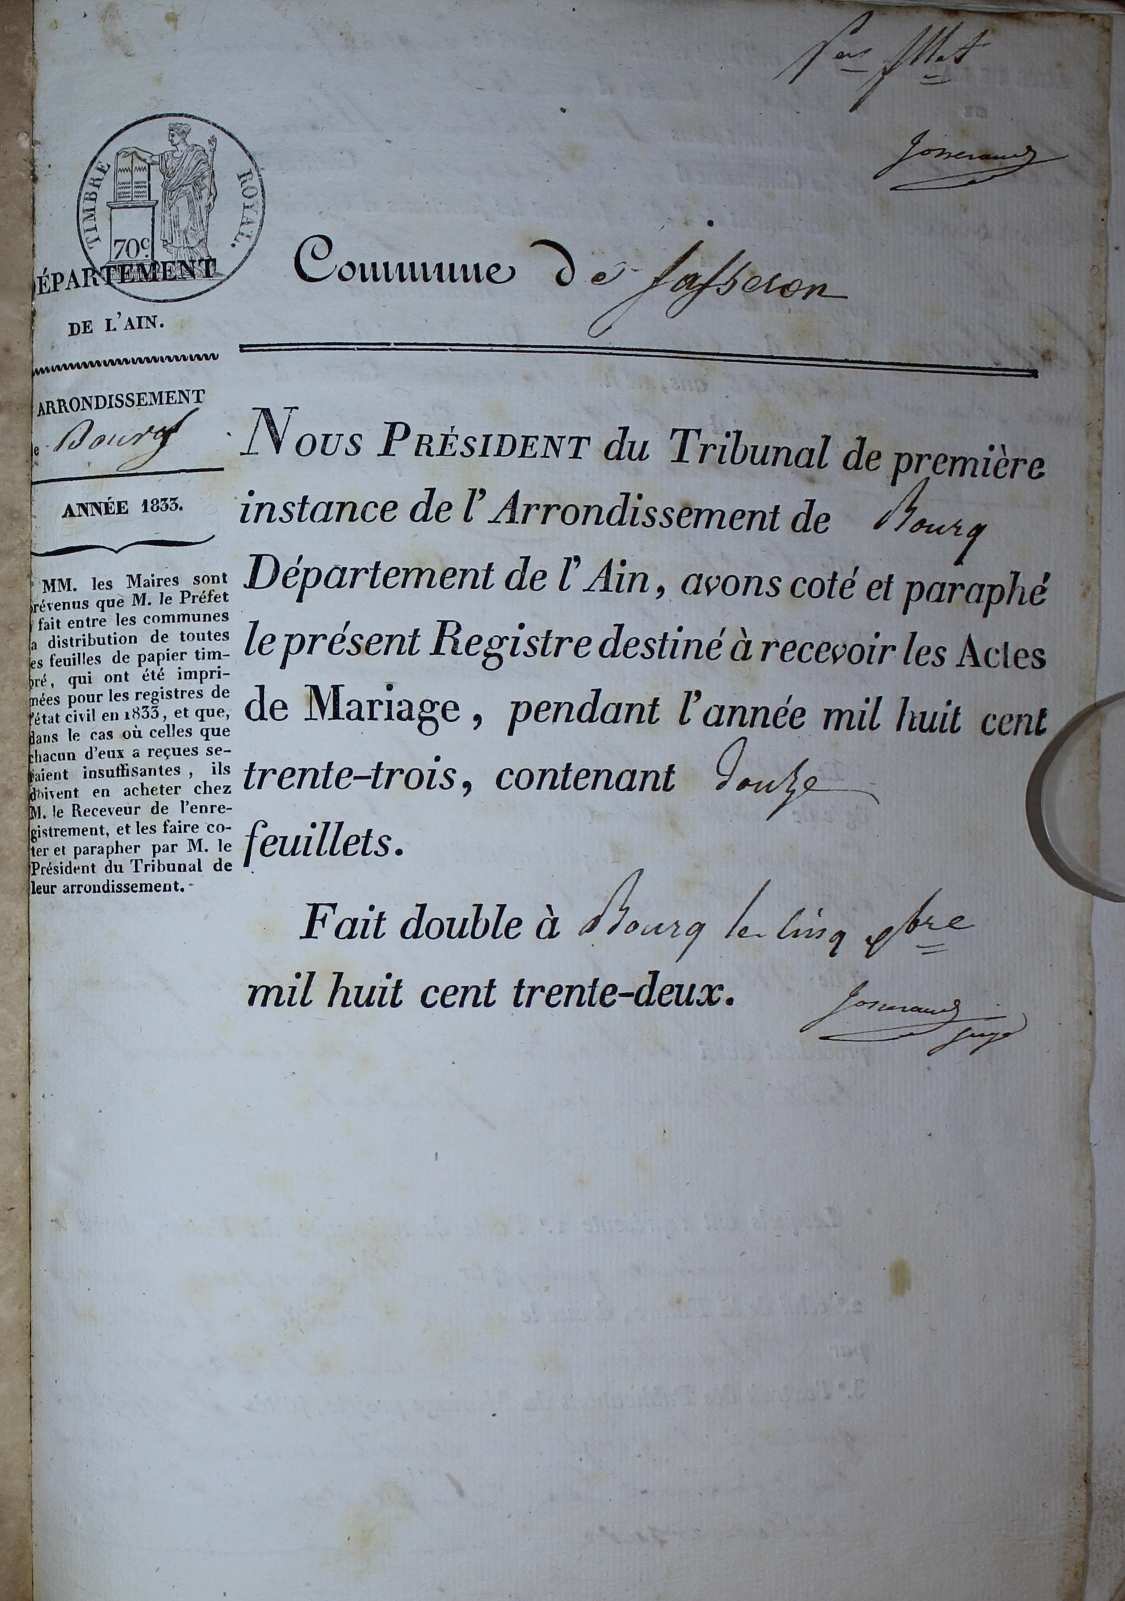 per fllet
Josserand
TIMBRE ROYAL.
70c
DÉPARTEMENT
DE L'AIN.
ARRONDISSEMENT
de Bourg
ANNÉE 1833.
MM. les Maires sont
prévenus que M. le Préfet
fait entre les communes
la distribution de toutes
les feuilles de papier tim-
bré, qui ont été impri-
mées pour les registres de
l'état civil en 1833, et que,
dans le cas où celles que
chacun d'eux a reçues se-
raient insuffisantes, ils
doivent en acheter chez
M. le Receveur de l'enre-
gistrement, et les faire co-
ter et parapher par M. le
Président du Tribunal de
leur arrondissement.
Commune de Jasseron
NOUS PRÉSIDENT du Tribunal de première
instance de l'Arrondissement de Bourg
Département de l'Ain, avons coté et paraphé
le présent Registre destiné à recevoir les Actes
de Mariage, pendant l'année mil huit cent
trente-trois, contenant douze
feuillets.
Fait double à Bourg le cinq 9bre
mil huit cent trente-deux.
Josserand
juge